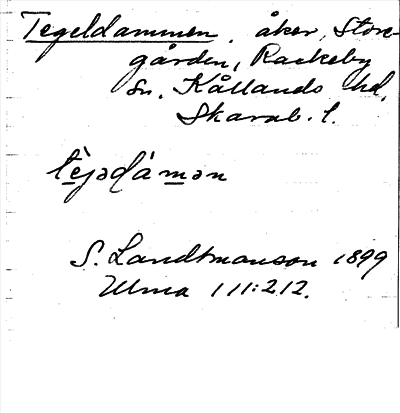 Tegeldammen, åker, Store-
gården, Rackeby
sn, Kållands hd,
Skarab. l.
tèjǝdámǝn
S. Landtmanson 1899
Ulma 111:212.